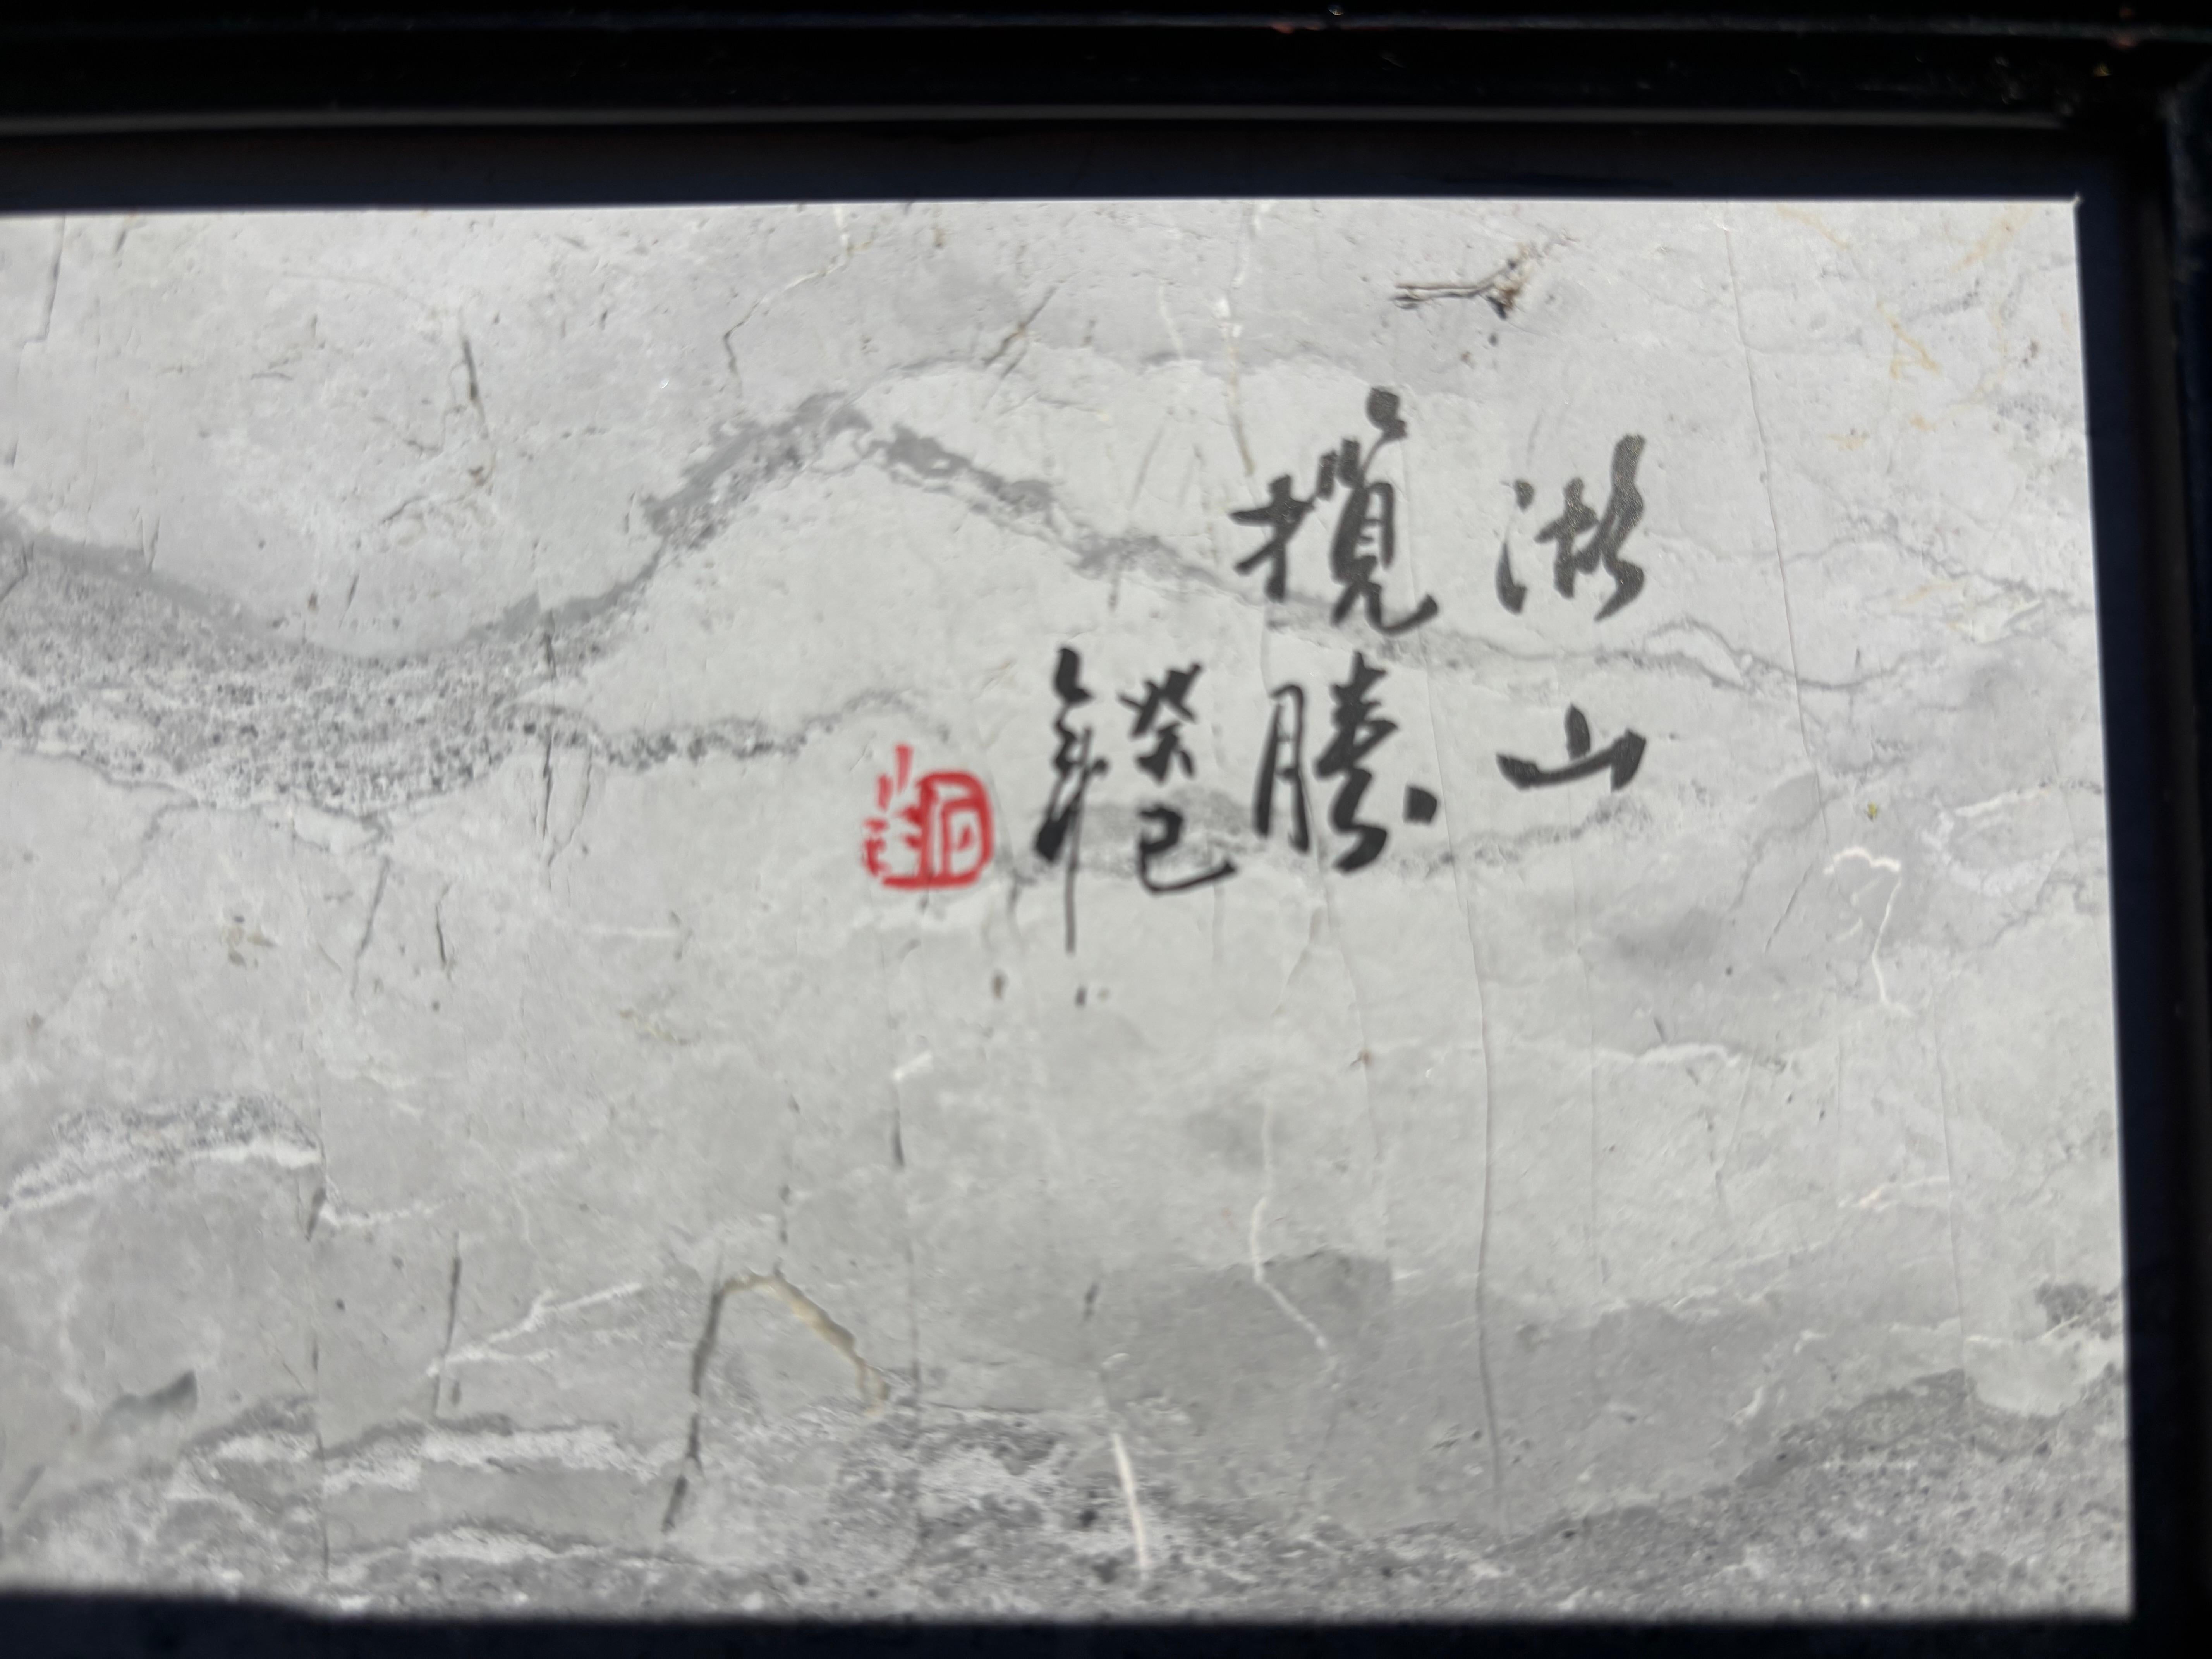 湖山
攬勝
癸巳
年